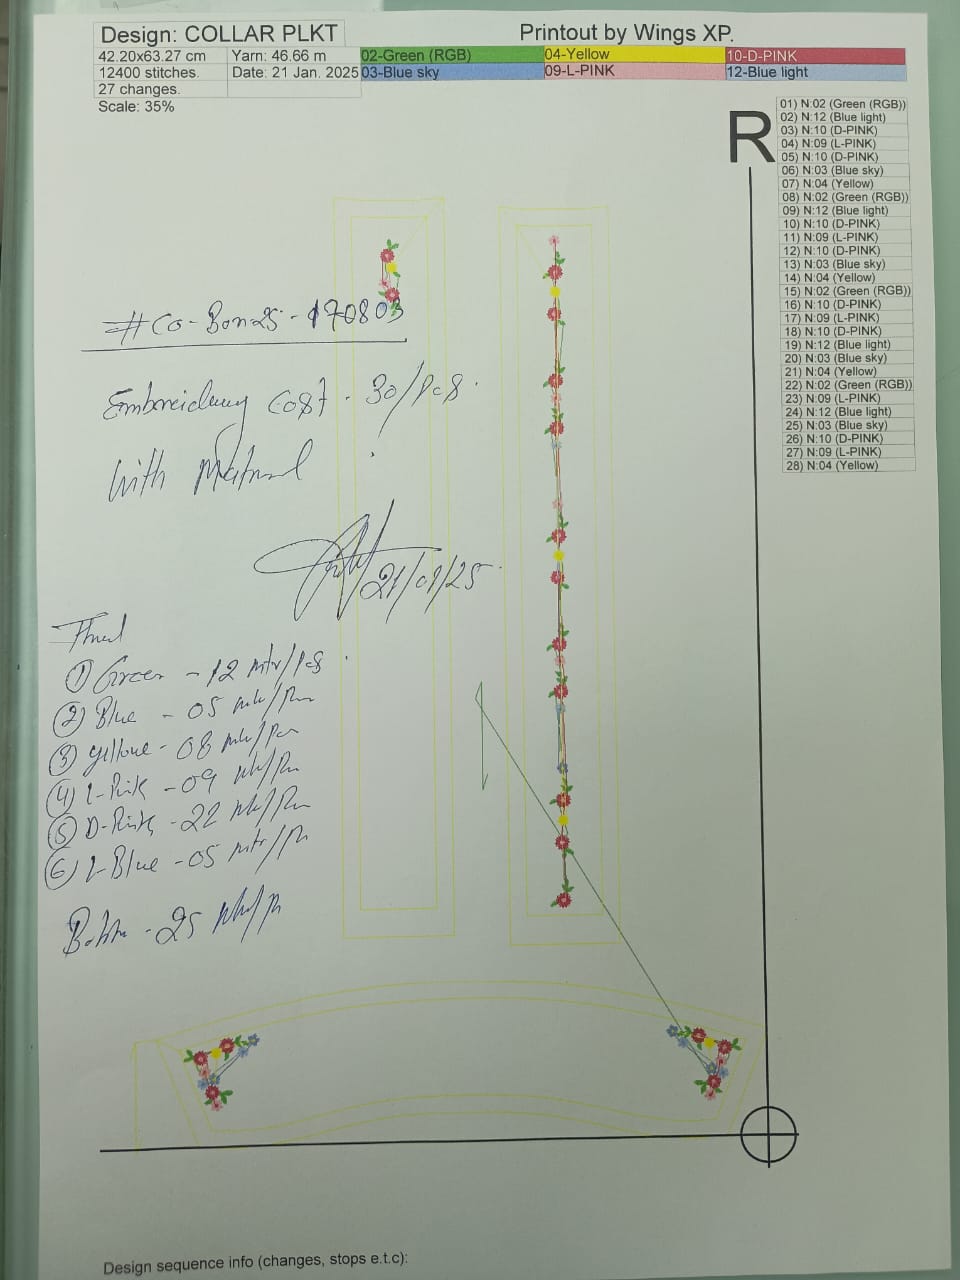 Design: COLLAR PLKT
Printout by Wings XP.
42.20x63.27 cm
Yarn: 46.66 m
02-Green (RGB)
04-Yellow
10-D-PINK
12400 stitches.
Date: 21 Jan. 2025
03-Blue sky
09-L-PINK
12-Blue light
27 changes.
Scale: 35%
R
01) N:02 (Green (RGB))
02) N:12 (Blue light)
03) N:10 (D-PINK)
04) N:09 (L-PINK)
05) N:10 (D-PINK)
06) N:03 (Blue sky)
07) N:04 (Yellow)
08) N:02 (Green (RGB))
09) N:12 (Blue light)
10) N:10 (D-PINK)
11) N:09 (L-PINK)
12) N:10 (D-PINK)
13) N:03 (Blue sky)
14) N:04 (Yellow)
15) N:02 (Green (RGB))
16) N:10 (D-PINK)
17) N:09 (L-PINK)
18) N:10 (D-PINK)
19) N:12 (Blue light)
20) N:03 (Blue sky)
21) N:04 (Yellow)
22) N:02 (Green (RGB))
23) N:09 (L-PINK)
24) N:12 (Blue light)
25) N:03 (Blue sky)
26) N:10 (D-PINK)
27) N:09 (L-PINK)
28) N:04 (Yellow)
# Co-Bon-25-170803
Embroidery Cost. 30/Pcs.
With Matrial
21/01/25
① Green - 12 mtr/Pcs
② Blue - 05
③ yellow - 08
④ L-Pink - 09
⑤ D-Pink - 22
⑥ L-Blue - 05 mtr/
- 25
Design sequence info (changes, stops e.t.c):